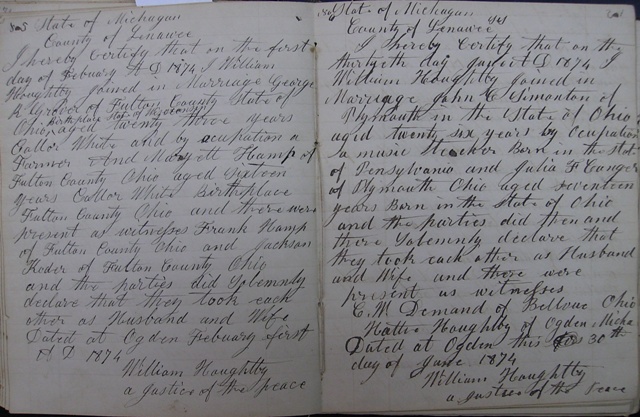 State of Michagan
County of Lenawee
I hereby Certify that on the first
day of Febuary A D 1874 I William
Houghtby joined in Marriage George
R Grover of Fulton County State of
birthplace State of
Ohio aged twenty three years
Callor White and by ocupation a
Farmer And Maryett Hamp of
Fulton County Ohio aged Sixteen
years Callor White Birthplace
Fulton County Ohio and there were
present as witnesses Frank Hamp
of Fulton County Ohio and Jackson
Yoder of Fulton County Ohio
and the parties did Solemnly
declare that they took each
other as Husband and Wife
Dated at Ogden Febuary first
A D 1874
William Houghtby
a Justice of the peace
State of Michagan
County of Lenawee
I hereby Certify that on the
thirtyeth day June A D 1874 I
William Houghtby joined in
Marriage John C Simonton of
Plymouth in the State of Ohio
aged twenty six years by Ocupation
a music Teacher Born in the State
of Pensylvania and Julia F Conger
of Plymouth Ohio aged seventeen
years Born in the State of Ohio
and the parties did then and
there Solemnly declare that
they took each other as Husband
and Wife and there were
present as witnesses
E M Demand of Bellvue Ohio
Hattie Houghtby of Ogden Mich
Dated at Ogden this 30th
day of June 1874
William Houghtby
a Justice of the Peace